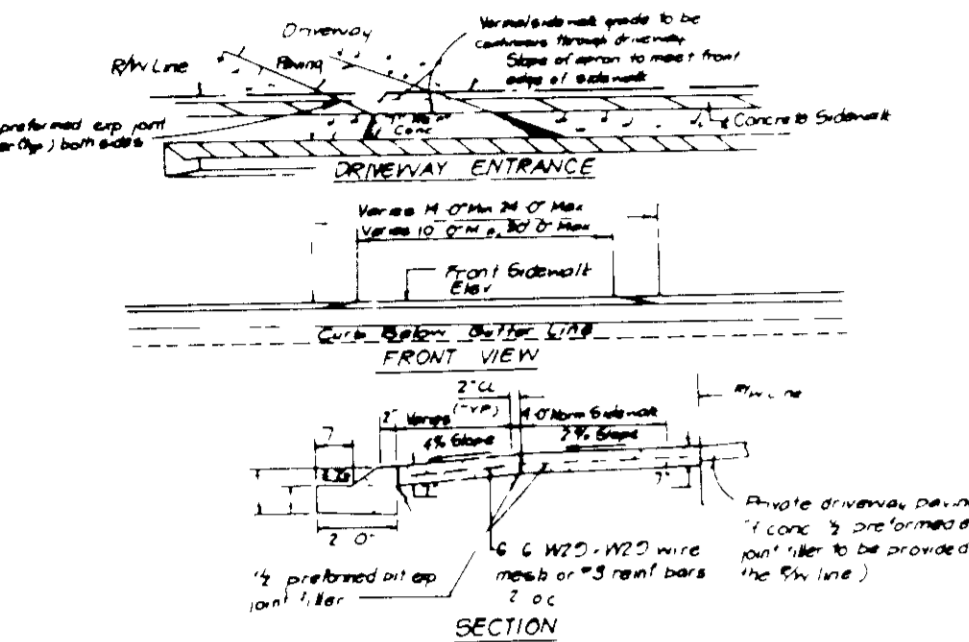 Driveway
Normal sidewalk grade to be
continuous through driveway
Slope of apron to meet front
edge of sidewalk
R/W Line
Paving
preformed exp joint
(Typ.) both sides
Conc
Concrete Sidewalk
DRIVEWAY ENTRANCE
Varies 14'0" Min 24'0" Max
Varies 10'0" Min, 20'0" Max
Front Sidewalk
Elev
Curb Below Gutter Line
FRONT VIEW
2" CL
(TYP)
R/W Line
2" Varies
4'0" Norm Sidewalk
7
4% Slope
2% Slope
7"
7"
2'0"
Private driveway paving
if conc ½ preformed
joint filler to be provided
the R/W line)
½ preformed bit exp
joint filler
6 6 W2.9-W2.9 wire
mesh or #3 reinf bars
2 oc
SECTION